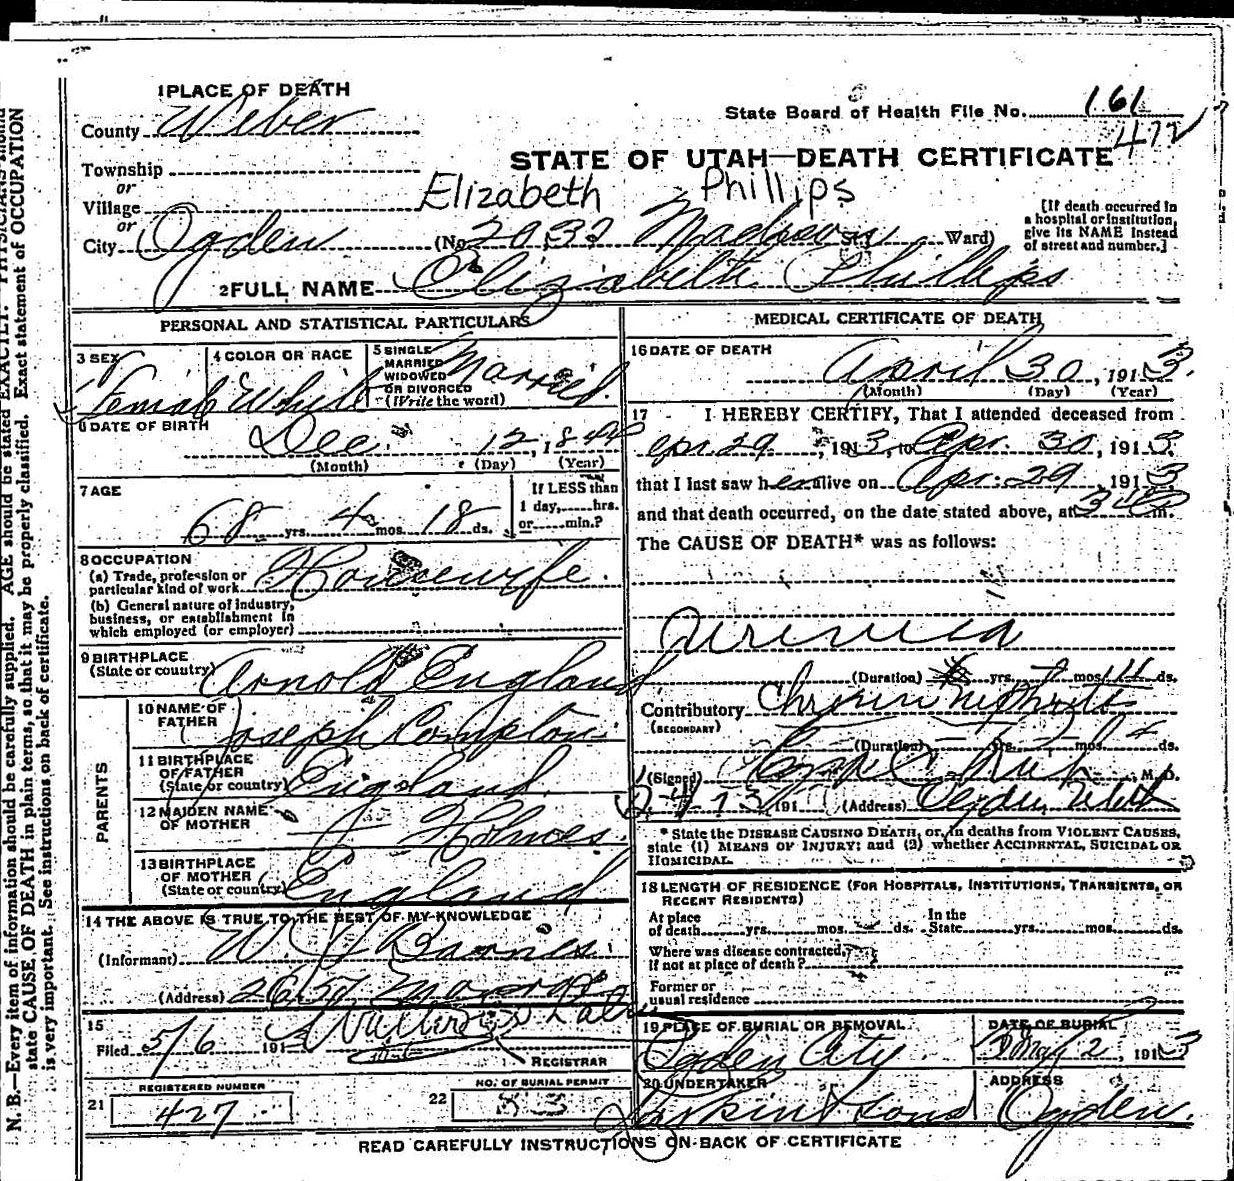 1 PLACE OF DEATH
County Weber
State Board of Health File No. 161
472
Township
or
STATE OF UTAH—DEATH CERTIFICATE
Village
or
Elizabeth Phillips
City Ogden (No. 2032 Madison St. Ward)
[If death occurred in
a hospital or institution,
give its NAME instead
of street and number.]
2 FULL NAME Elizabeth Phillips
PERSONAL AND STATISTICAL PARTICULARS
3 SEX Female
4 COLOR OR RACE White
5 SINGLE
MARRIED
WIDOWED
OR DIVORCED
(Write the word)
Married
6 DATE OF BIRTH
Dec. 12, 1844
(Month) (Day) (Year)
7 AGE
68 yrs. 4 mos. 18 ds.
If LESS than
1 day, hrs.
or min.?
8 OCCUPATION
(a) Trade, profession or
particular kind of work Housewife.
(b) General nature of industry,
business, or establishment in
which employed (or employer)
9 BIRTHPLACE
(State or country) Arnold England
PARENTS
10 NAME OF
FATHER Joseph Compton
11 BIRTHPLACE
OF FATHER
(State or country) England.
12 MAIDEN NAME
OF MOTHER Holmes.
13 BIRTHPLACE
OF MOTHER
(State or country) England
14 THE ABOVE IS TRUE TO THE BEST OF MY KNOWLEDGE
(Informant) W. Barnes
(Address)
15
Filed 5/6 191
REGISTRAR
REGISTERED NUMBER
21 427
NO. OF BURIAL PERMIT
22
MEDICAL CERTIFICATE OF DEATH
16 DATE OF DEATH
April 30, 1913.
(Month) (Day) (Year)
17 I HEREBY CERTIFY, That I attended deceased from
Apr. 29, 1913, to Apr. 30, 1913.
that I last saw her alive on Apr. 29, 1913
and that death occurred, on the date stated above, at 340 m.
The CAUSE OF DEATH* was as follows:
Uremia
(Duration) yrs. mos. ds.
Contributory Chronic Nephritis
(SECONDARY)
(Duration) yrs. mos. ds.
(Signed) M.D.
191 (Address) Ogden Utah
* State the DISEASE CAUSING DEATH, or, in deaths from VIOLENT CAUSES,
state (1) MEANS OF INJURY; and (2) whether ACCIDENTAL, SUICIDAL OR
HOMICIDAL.
18 LENGTH OF RESIDENCE (FOR HOSPITALS, INSTITUTIONS, TRANSIENTS, OR
RECENT RESIDENTS)
At place In the
of death yrs. mos. ds. State yrs. mos. ds.
Where was disease contracted,
if not at place of death?
Former or
usual residence
19 PLACE OF BURIAL OR REMOVAL
Ogden City
DATE OF BURIAL
May 2, 1913
20 UNDERTAKER
Larkin & Sons
ADDRESS
Ogden.
READ CAREFULLY INSTRUCTIONS ON BACK OF CERTIFICATE
N. B.—Every item of information should be carefully supplied. AGE should be stated EXACTLY. PHYSICIANS should
state CAUSE OF DEATH in plain terms, so that it may be properly classified. Exact statement of OCCUPATION
is very important. See instructions on back of certificate.